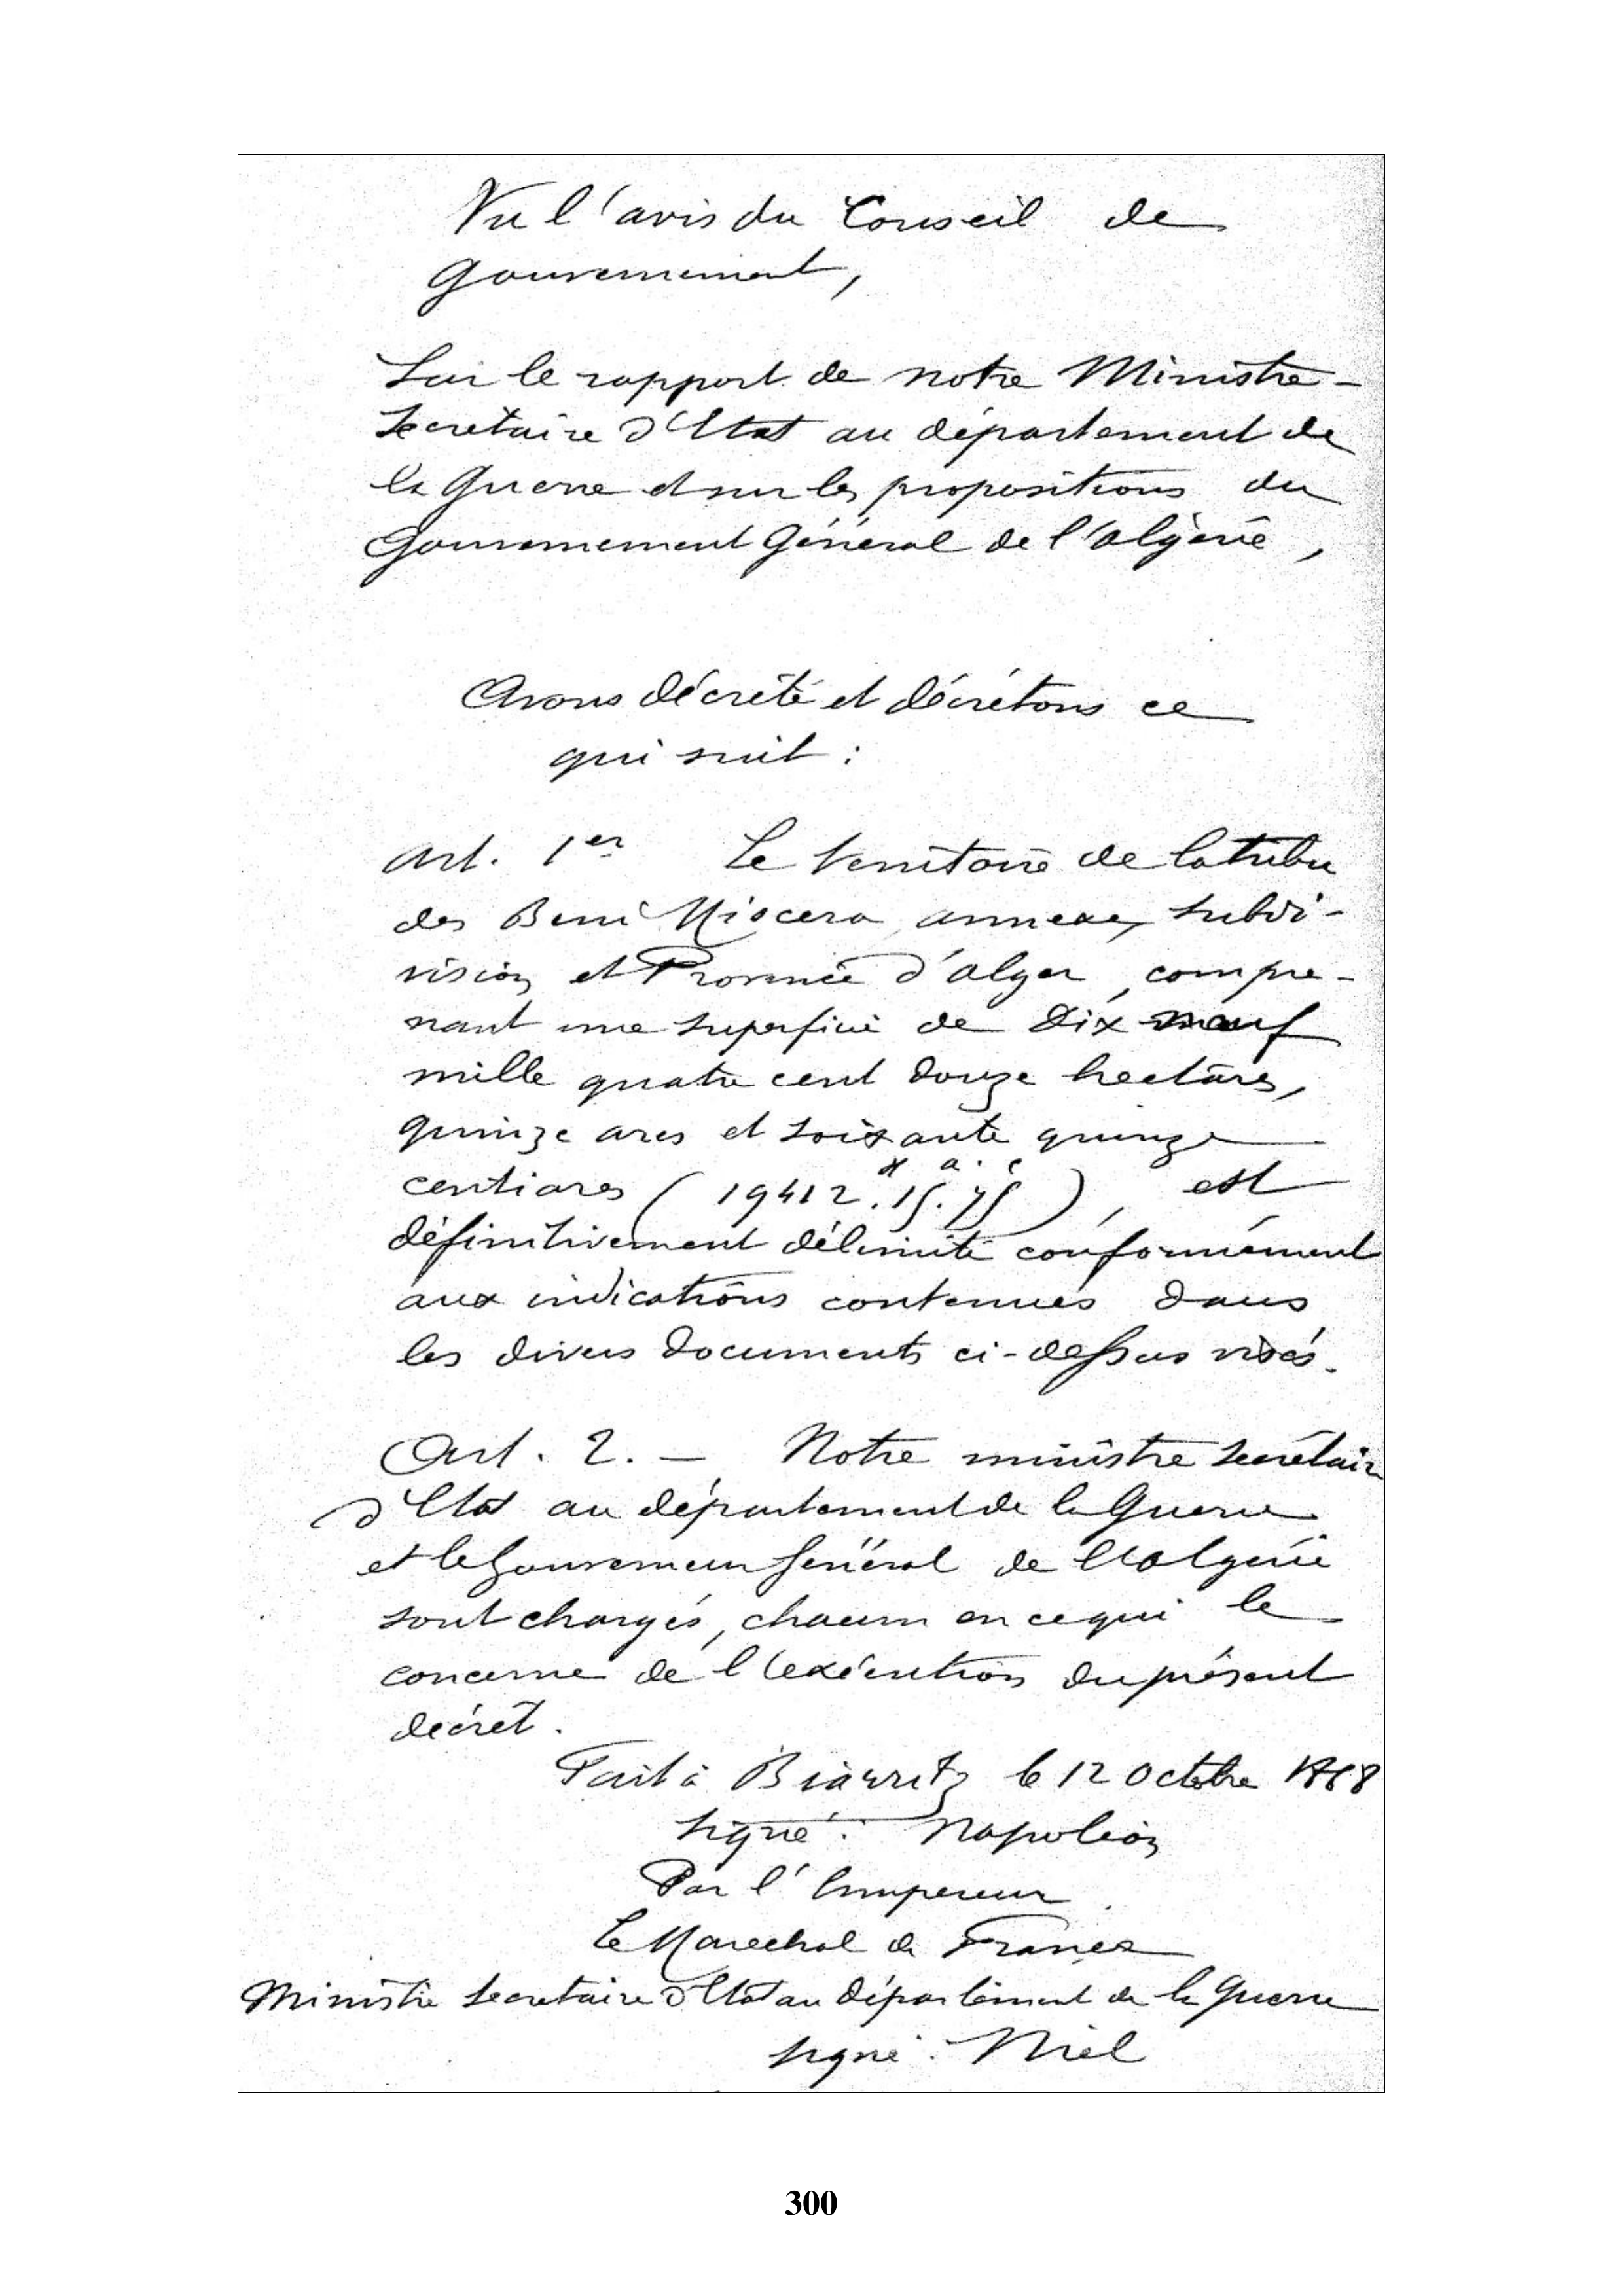 Vu l'avis du Conseil de
Gouvernement,
Sur le rapport de notre Ministre-
Secretaire d'Etat au département de
la Guerre et sur les propositions du
Gouvernement Général de l'Algérie,
Avons décrété et décrétons ce
qui suit :
Art. 1er Le territoire de la tribu
des Beni Miscera annexe, subdi-
vision et Province d'Alger, compre-
nant une superficie de Dix neuf
mille quatre cent douze hectares,
quinze ares et soixante quinze
centiares (19412H.15a.75c), est
définitivement délimité conformément
aux indications contenues dans
les divers documents ci-dessus visés.
Art. 2. - Notre ministre secrétaire
d'Etat au département de la Guerre
et le Gouverneur Général de l'Algérie
sont chargés, chacun en ce qui le
concerne de l'exécution du présent
décret.
Fait à Biarritz le 12 Octobre 1868
signé : Napoléon
Par l'Empereur
Le Marechal de France
Ministre Secretaire d'Etat au Département de la Guerre
signé : Niel
300